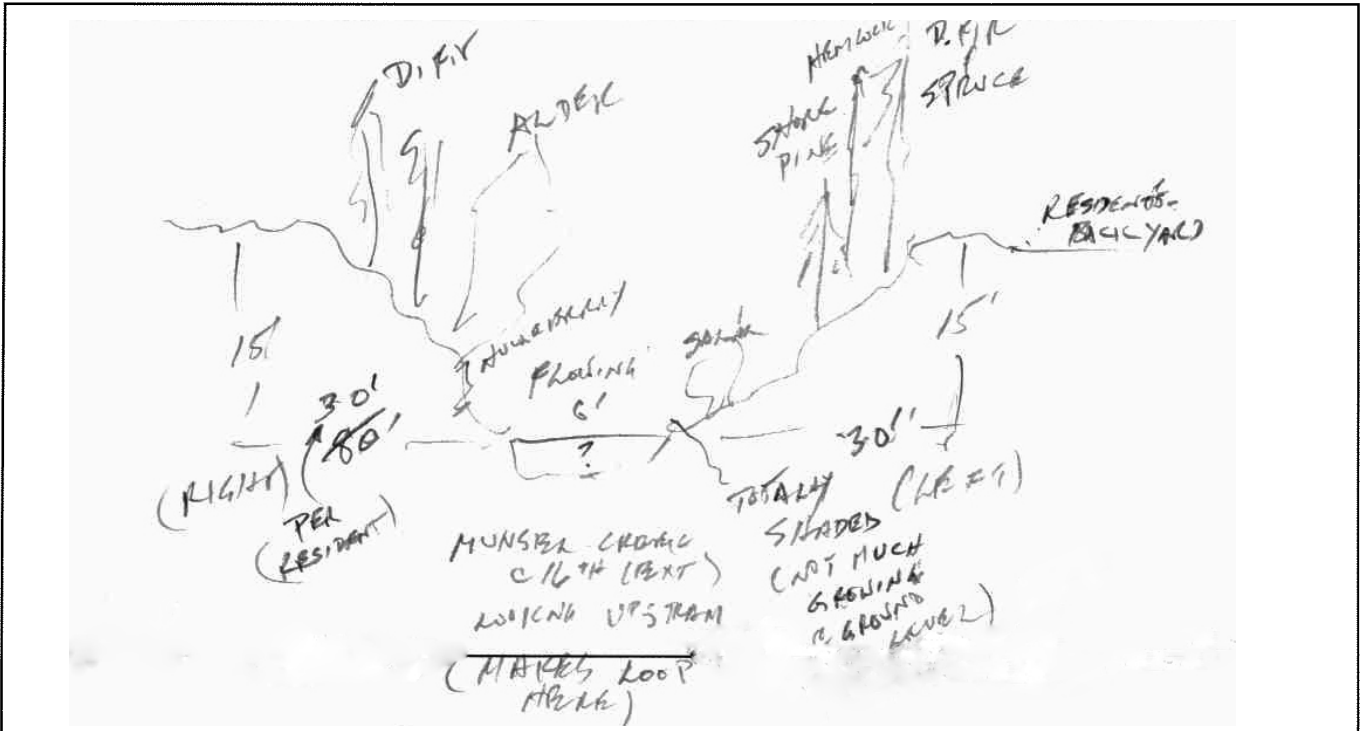 D. Fir
ALDER
HEMLOCK
D. FIR
SPRUCE
SHORE
PINE
RESIDENTS
BACKYARD
HUCKLEBERRY
FLOWING
6'
?
SALAL
15'
15'
30'
80'
(RIGHT)
(PER
RESIDENT)
30'
(LEFT)
TOTALLY
SHADED
(NOT MUCH
GROWING
@ GROUND
LEVEL)
MUNSEL CREEK
@ 16TH (EXT)
LOOKING UPSTRAM
(MAKES LOOP
HERE)